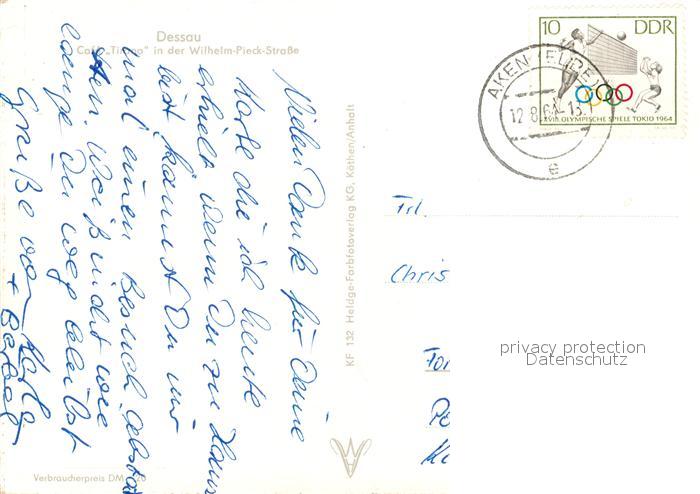 Dessau
Café „Tirana" in der Wilhelm-Pieck-Straße
10 DDR
XVIII. OLYMPISCHE SPIELE TOKIO 1964
AKEN (ELBE)
12.8.64. 13
e
Vielen Dank für Deine
Karte die ich heute
erhielt wenn Du zu Haus
bist kannst Du mir
mal einen Besuch abstat
ten. Weiß nicht wie
lange Du weg bleibst
Grüße von
+
KF 132 Heldge-Farbfotoverlag KG, Köthen/Anhalt
Frl.
Chris
privacy protection
Datenschutz
Verbraucherpreis DM